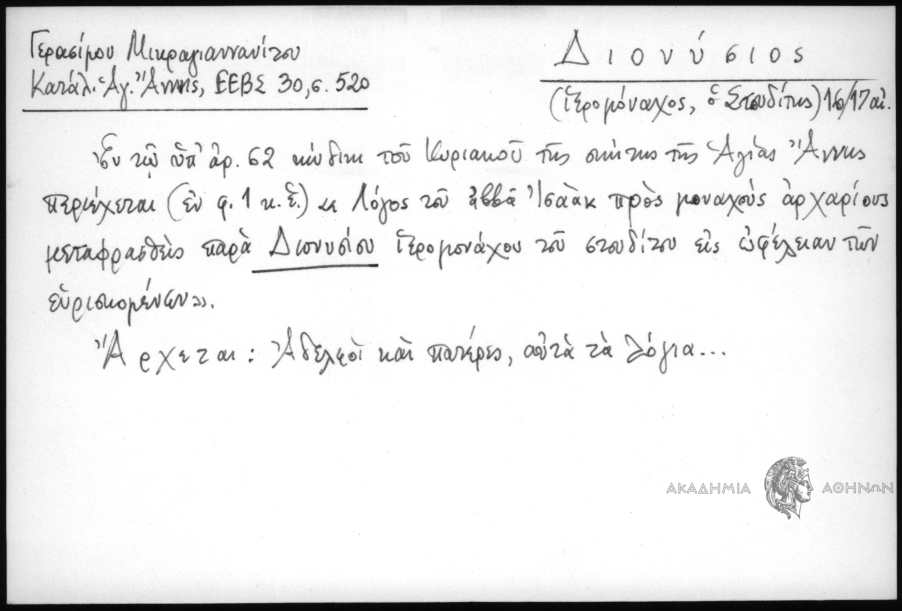 Γερασίμου Μικραγιαννανίτου
Κατάλ. Ἁγ. Ἄννης, ΕΕΒΣ 30, σ. 520
Διονύσιος
(ἱερομόναχος, ὁ Στουδίτης) 16/17 αἰ.
Ἐν τῷ ὑπ' ἀρ. 62 κώδικι τοῦ Κυριακοῦ τῆς σκήτης τῆς Ἁγίας Ἄννης
περιέχεται (ἐν φ. 1 κ. ἑ.) « Λόγος τοῦ ἀββᾶ Ἰσαὰκ πρὸς μοναχοὺς ἀρχαρίους
μεταφρασθεὶς παρὰ Διονυσίου ἱερομονάχου τοῦ στουδίτου εἰς ὠφέλειαν τῶν
εὑρισκομένων».
Ἄρχεται: Ἀδελφοὶ καὶ πατέρες, αὐτὰ τὰ λόγια...
ΑΚΑΔΗΜΙΑ ΑΘΗΝΩΝ